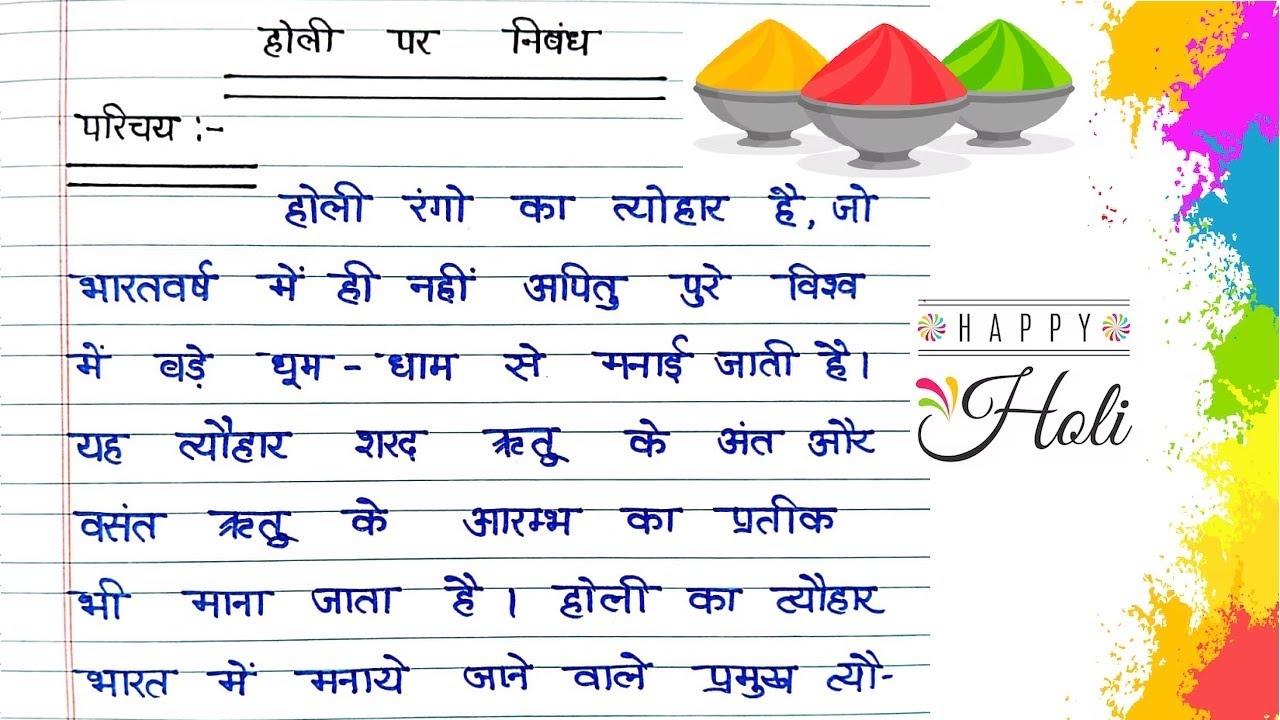 होली पर निबंध
परिचय :-
होली रंगो का त्योहार है, जो
भारतवर्ष में ही नहीं अपितु पुरे विश्व
में वड़े धूम - धाम से मनाई जाती है।
यह त्यौहार शरद ऋतु के अंत और
वसंत ऋतु के आरम्भ का प्रतीक
भी माना जाता है । होली का त्यौहार
भारत में मनाये जाने वाले प्रमुख त्यौ-
HAPPY
Holi